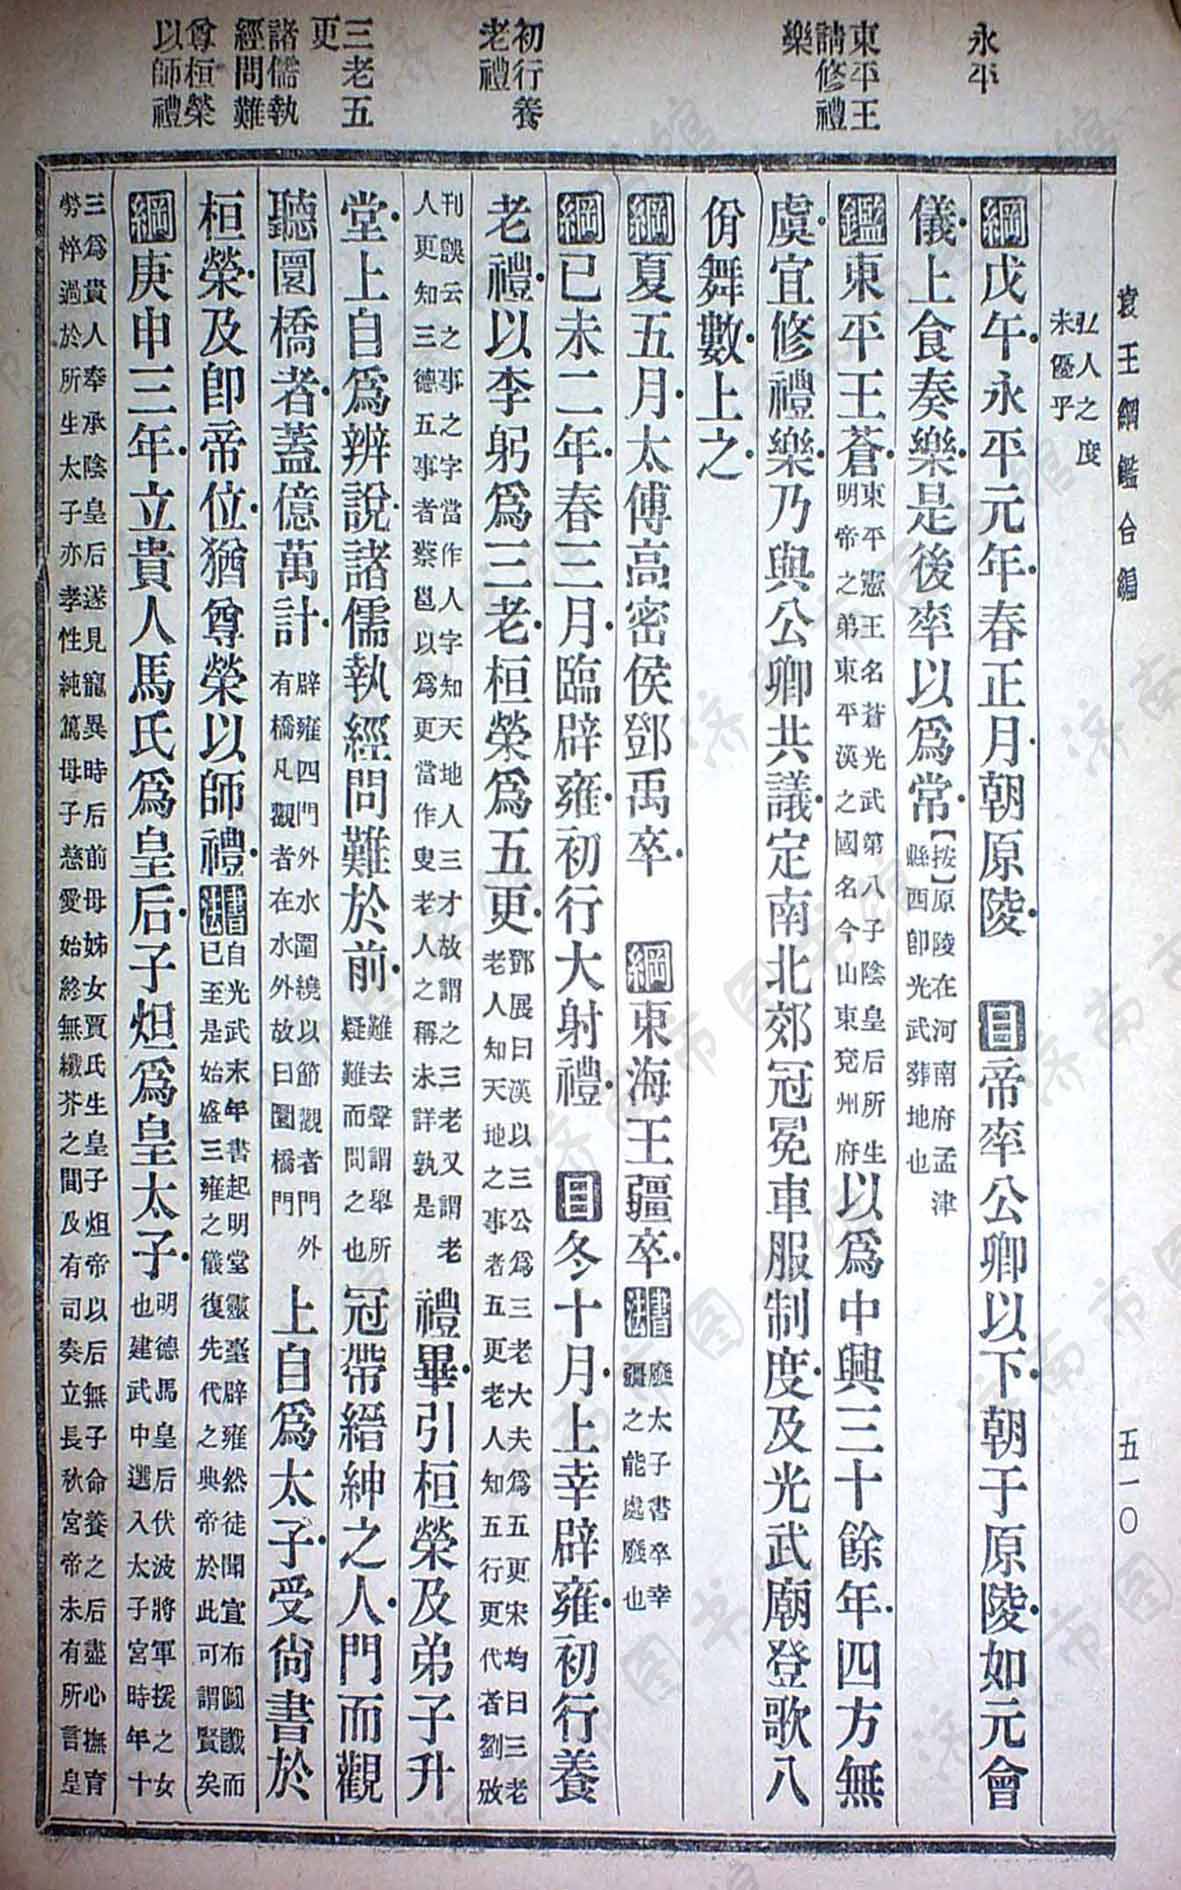 永平
東平王
請修禮
樂
初行養
老禮
三老五
更
諸儒執
經問難
尊桓榮
以師禮
袁王綱鑑合編 五一〇
弘人之度
未優乎
綱戊午永平元年春正月朝原陵 目帝率公卿以下朝于原陵如元會
儀上食奏樂是後率以爲常【按】原陵在河南府孟津縣西卽光武葬地也
鑑東平王蒼東平憲王名蒼光武第八子陰皇后所生明帝之弟東平漢之國名今山東兗州府以爲中興三十餘年四方無
虞宜修禮樂乃與公卿共議定南北郊冠冕車服制度及光武廟登歌八
佾舞數上之
綱夏五月太傅高密侯鄧禹卒 綱東海王疆卒書法廢太子書卒幸疆之能處廢也
綱已未二年春三月臨辟雍初行大射禮 目冬十月上幸辟雍初行養
老禮以李躬爲三老桓榮爲五更鄧展曰漢以三公爲三老大夫爲五更宋均曰三老老人知天地之事者五更老人知五行更代者劉攽
刊誤云之事之字當作人字知天地人三才故謂之三老又謂老人更知三德五事者蔡邕以爲更當作叟老人之稱未詳孰是禮畢引桓榮及弟子升
堂上自爲辨說諸儒執經問難於前難去聲謂舉所疑難而問之也冠帶縉紳之人門而觀
聽圜橋者蓋億萬計辟雍四門外水圍繞以節觀者門外有橋凡觀者在水外故曰圜橋門上自爲太子受尙書於
桓榮及卽帝位猶尊榮以師禮書法自光武末年書起明堂靈臺辟雍然徒聞宣布圖讖而已至是始盛三雍之儀復先代之典帝於此可謂賢矣
綱庚申三年立貴人馬氏爲皇后子炟爲皇太子明德馬皇后伏波將軍援之女也建武中選入太子宮時年十
三爲貴人奉承陰皇后遂見寵異時后前母姊女賈氏生皇子炟帝以后無子命養之后盡心撫育勞悴過於所生太子亦孝性純篤母子慈愛始終無纖芥之間及有司奏立長秋宮帝未有所言皇